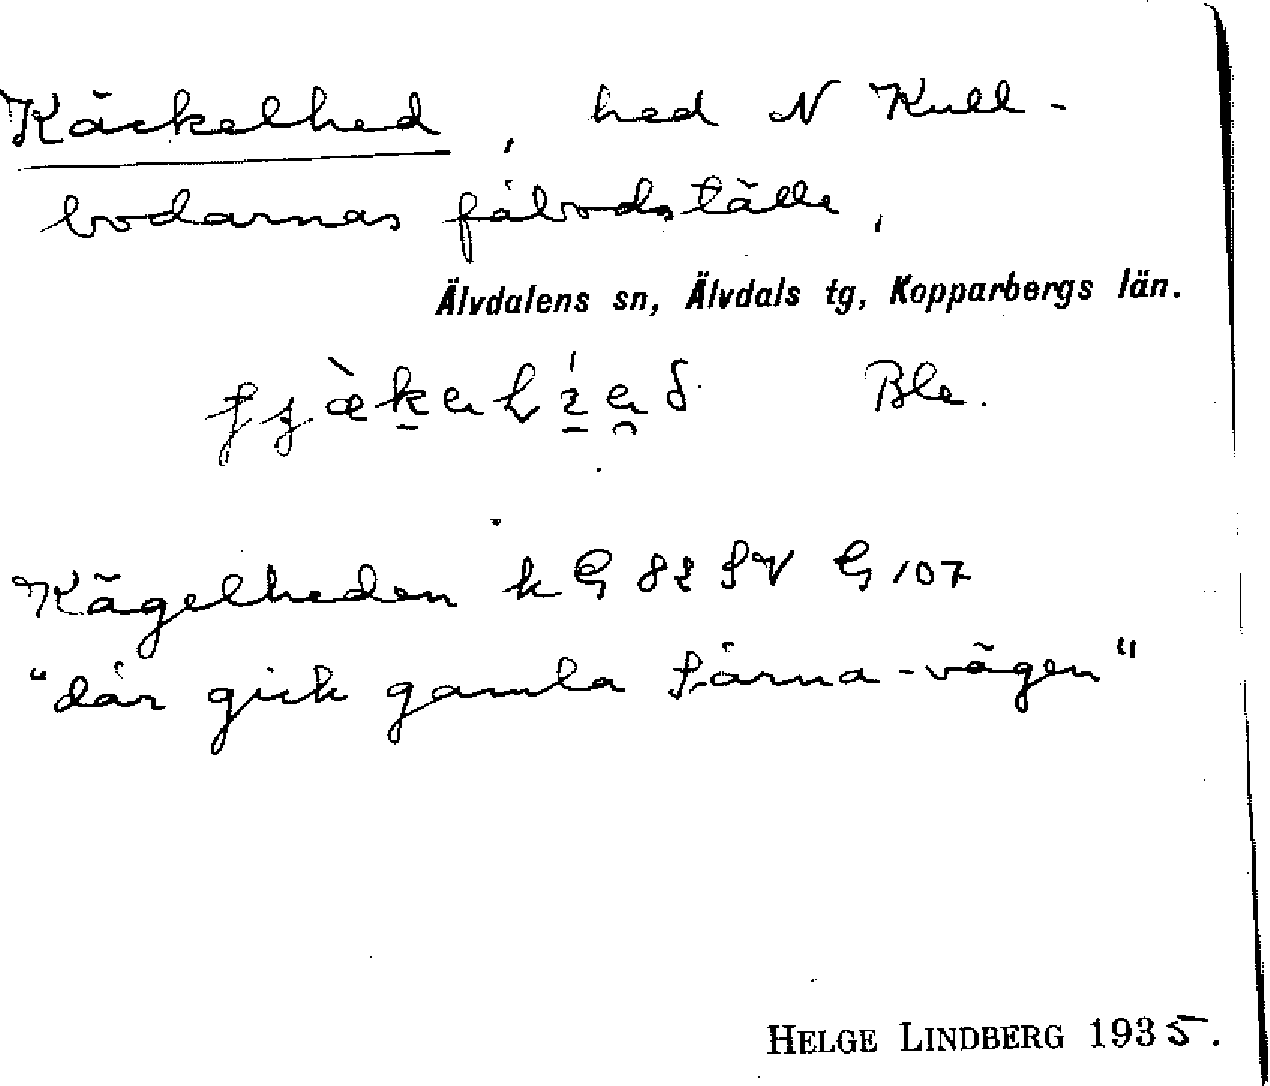 Käckelhed, hed N Kull-
bodarnas fäbodställe,
Älvdalens sn, Älvdals tg, Kopparbergs län.
Ble.
Kägelheden k G 82 SV G 107
"där gick gamla Särna-vägen"
HELGE LINDBERG 1935.